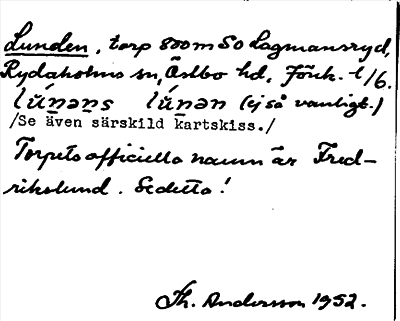 Lunden, torp 800 m SO Lagmansryd,
Rydaholms sn, Östbo hd, Jönk. l/6.
lúnəns lúnən (ej så vanligt.)
/Se även särskild kartskiss./
Torpets officiella namn är Fred-
rikslund. Se detta!
Th. Andersson 1952.